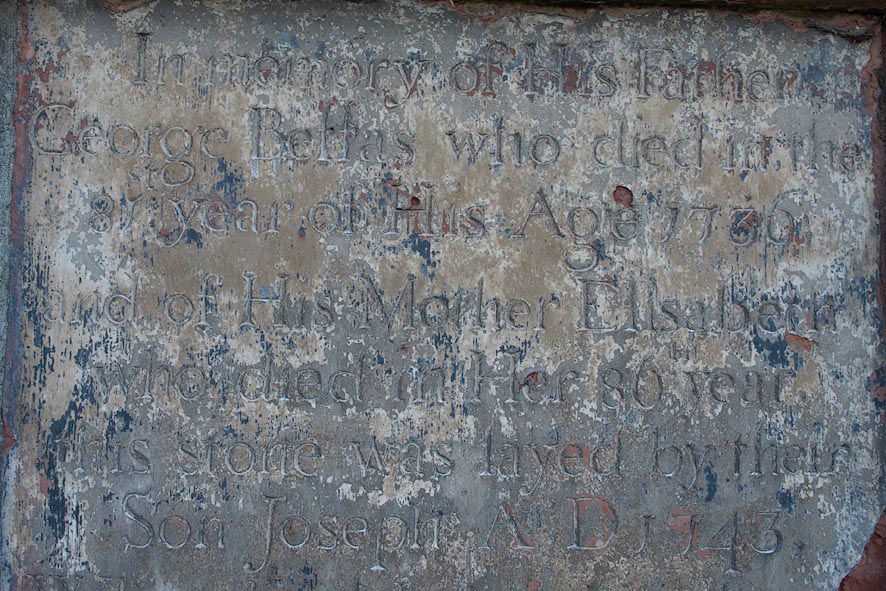 In memory of His Father
George Beffas who died in the
81 stg year of His Age 1736
and of His Mother Elisabeth
who died in Her 80 year
this stone was layed by their
Son Joseph A D 1743